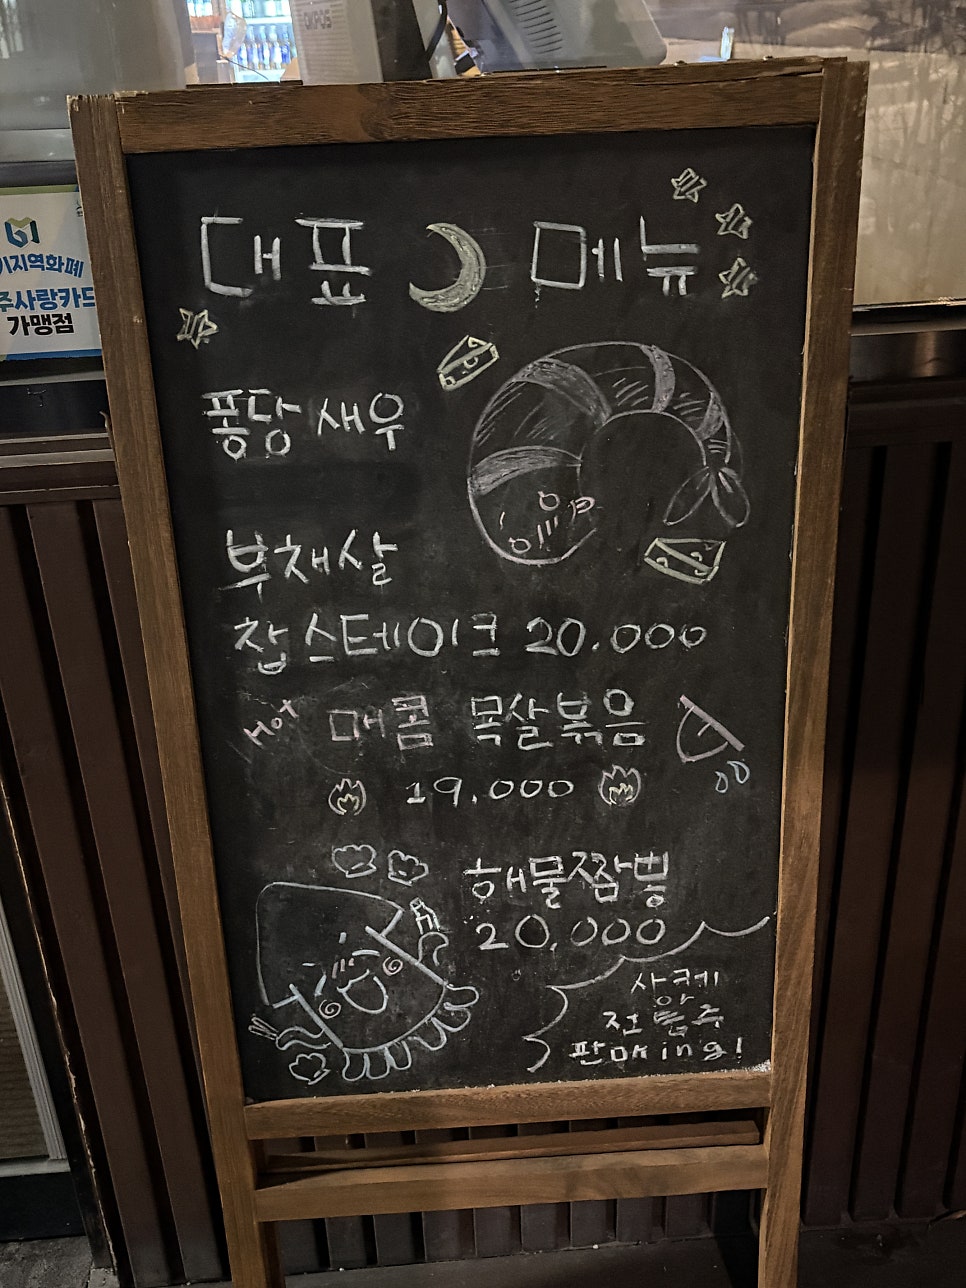 OKPOS
기지역화폐
주사랑카드
가맹점
대표 메뉴
퐁당 새우
부채살
찹스테이크 20.000
HOT 매콤 목살볶음
19.000
해물짬뽕
20,000
사케
전통주
판매ing!